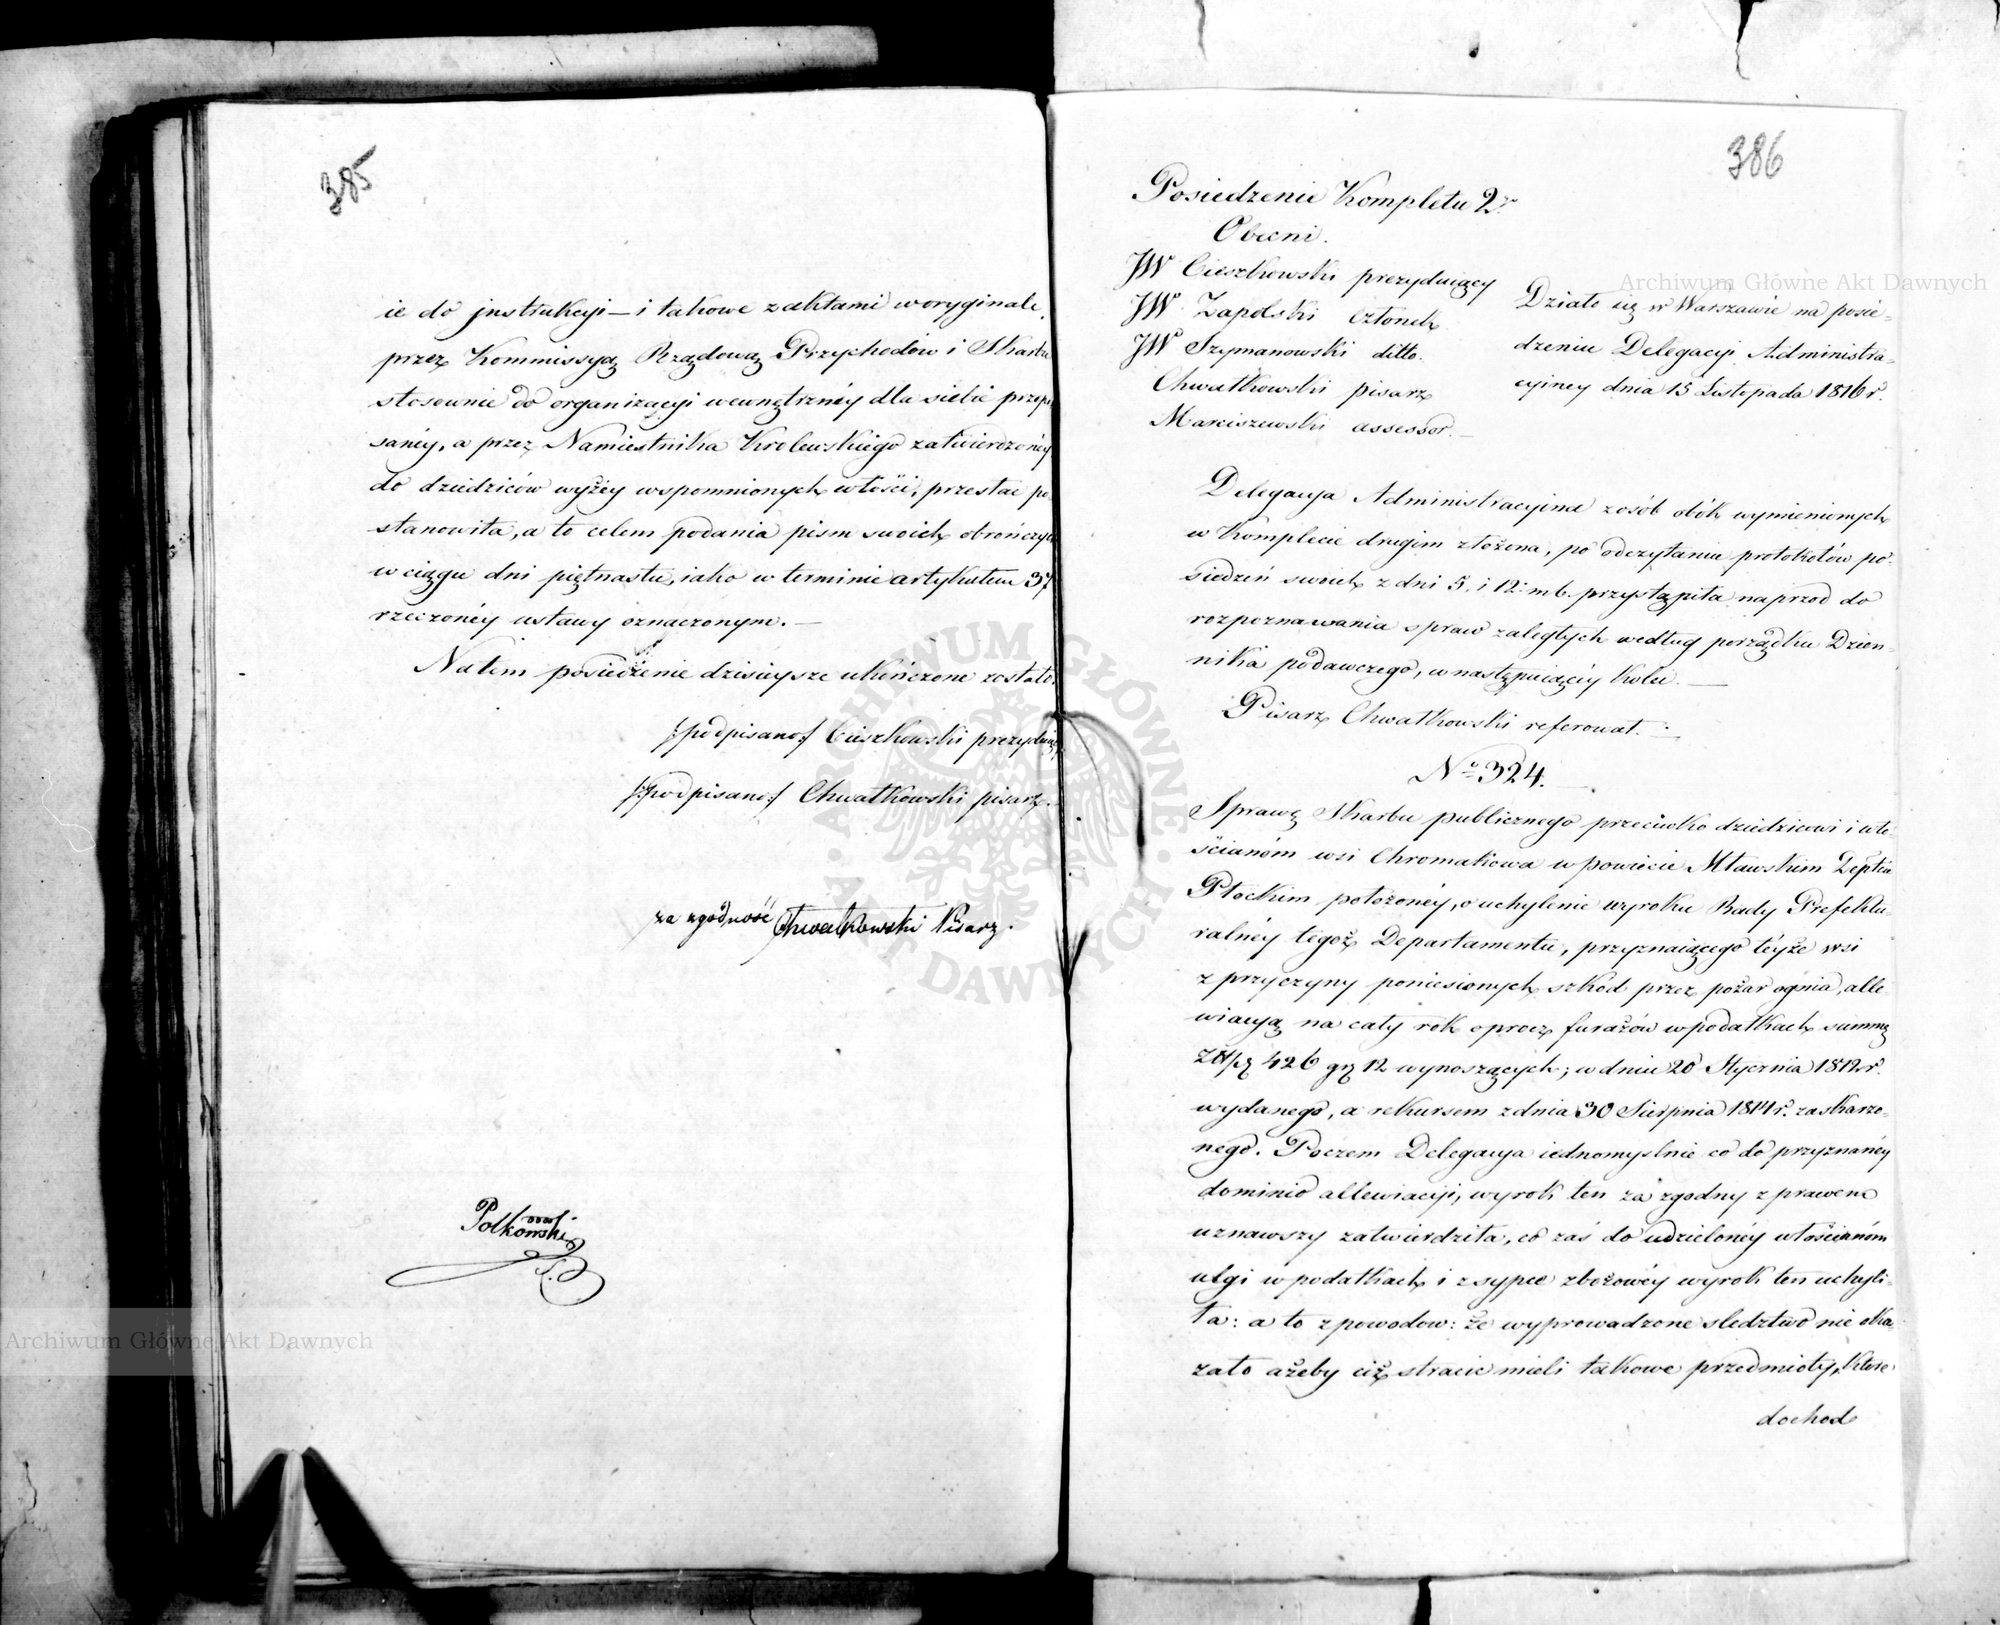 385
ie do jnstrukcyi – i takowe z aktami w oryginale,
przez Kommissyą Rządową Przychodów i Skarbu
stosownie do organizacyi wewnętrznéy dla siebie przepi
sanéy, a przez Namiestnika Krolewskiego zatwierdzonéy
do dziedziców wyżéy wspomnionych włości, przestać po
stanowiła, a to celem podania pism swoich obrończych
w ciągu dni piętnastu, iako w terminie artykułem 37
rzeczonéy ustawy oznaczonym. –
Na tem posiedzenie dzisieysze ukończone zostało.
/:podpisano:/ Cieszkowski prezyduiący
/:podpisano:/ Chwałkowski pisarz.
za zgodność Chwałkowski Pisarz.
Polkowski
386
Posiedzenie Kompletu 2go
Obecni.
JW Cieszkowski prezyduiący
JW Zapolski Członek
JW Szymanowski ditto.
Chwałkowski pisarz
Marciszewski assessor. –
Działo się w Warszawie na posie-
dzeniu Delegacyi Administra-
cyiney dnia 15 Listopada 1816 r.
Delegacya Administracyina z osób obok wymienionych
w Komplecie drugim złożona, po odczytaniu protokołów po-
siedzeń swoich z dni 5. i 12. m. b. przystąpiła naprzod do
rozpoznawania spraw zaległych według porządku Dzien-
nika podawczego, w następuiącéy kolei. –
Pisarz Chwałkowski referował. :
No 324.
Sprawę Skarbu publicznego przeciwko dziedzicowi i wło-
ścianóm wsi Chromakowa w powiecie Mławskim Deptcie
Płockim położonéy, o uchylenie wyroku Rady Prefektu-
ralnéy tegoż Departamentu, przyznaiącego téyże wsi
z przyczyny poniesionych szkód przez pożar ognia, alle-
wiacyą na cały rok oprocz furażów w podatkach summę
Złłp. 426 gr 12 wynoszących; w dniu 20 Stycznia 1812 r.
wydanego, a rekursem z dnia 30 Sierpnia 1814 r. zaskarżo-
nego. Poczem Delegacya iednomyslnie co do przyznanéy
dominio allewiacyi, wyrok ten za zgodny z prawem
uznawszy zatwierdziła, co zaś do udzielonéy włościanóm
ulgi w podatkach i zsypce zbożowéy wyrok ten uchyli-
ła: a to z powodow: że wyprowadzone sledztwo nie oka-
zało ażeby ciż stracić mieli takowe przedmioty, ktore
dochod
Archiwum Główne Akt Dawnych
Archiwum Główne Akt Dawnych
ARCHIWUM GŁÓWNE AKT DAWNYCH